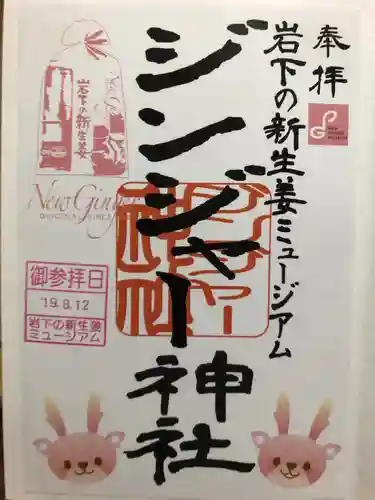 奉拝
岩下の新生姜ミュージアム
ジンジャー神社
岩下の新生姜
New Ginger
御参拝日
'19.8.12
岩下の新生姜
ミュージアム